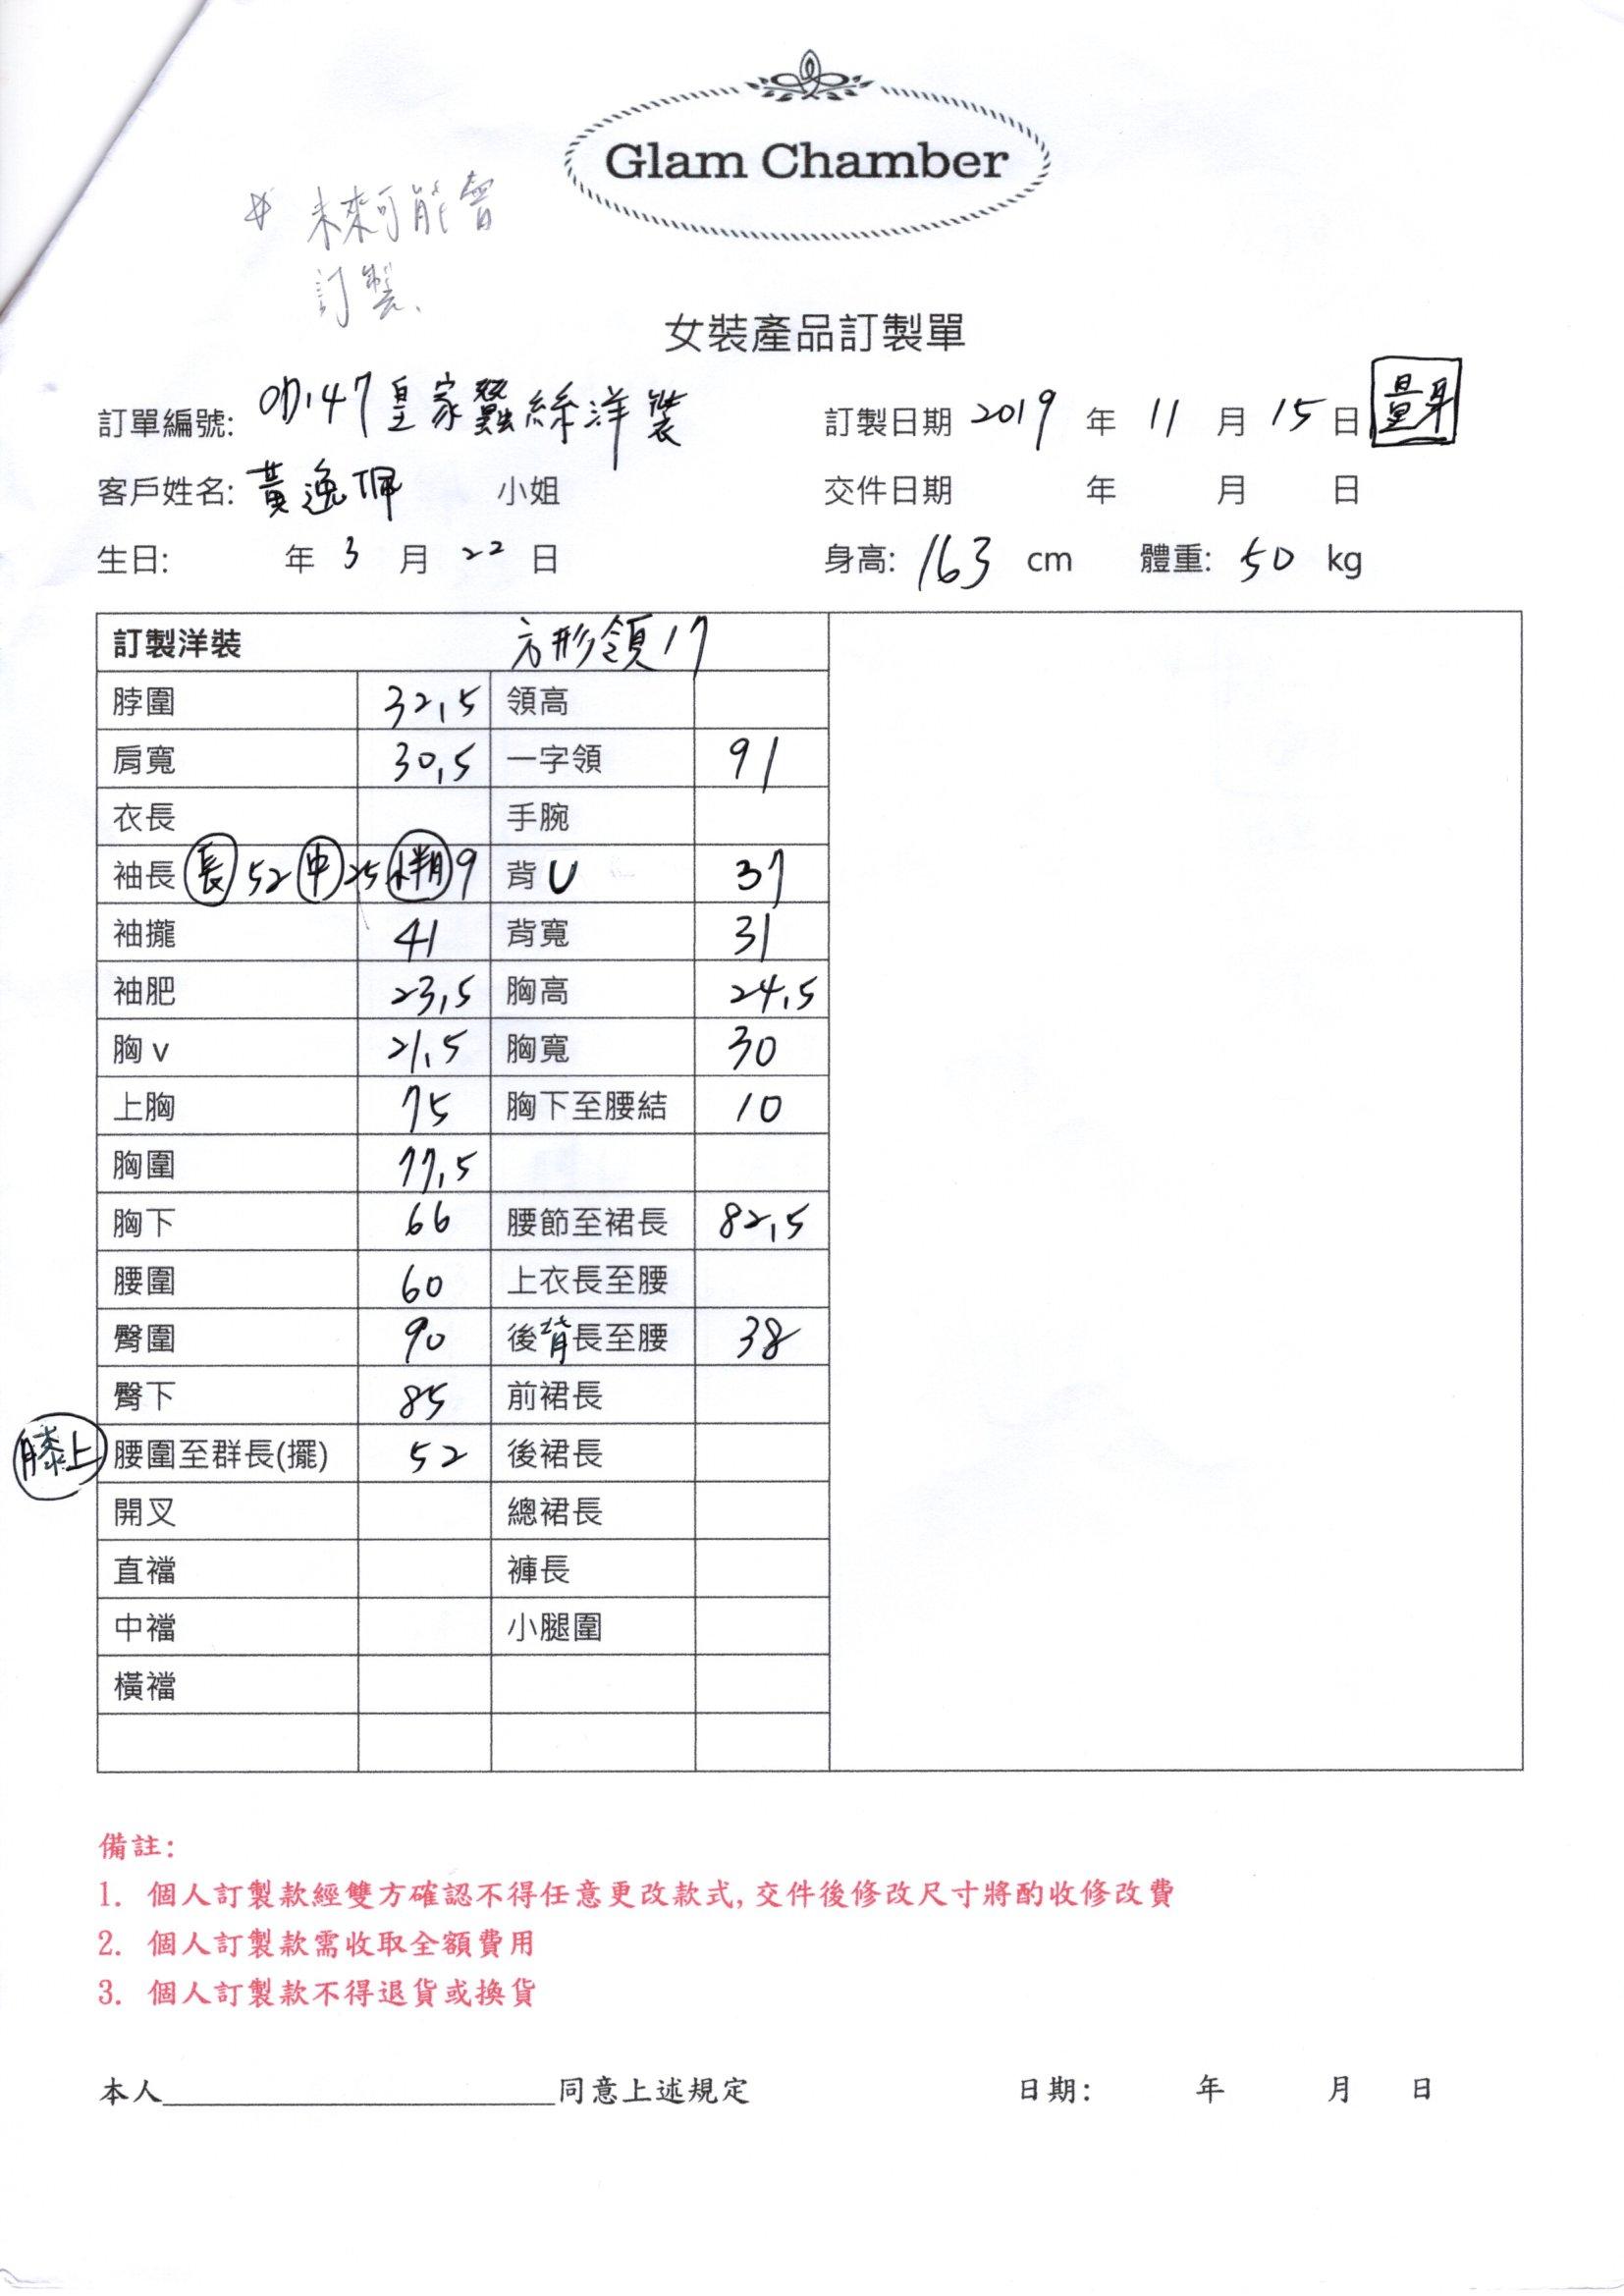 Glam Chamber
# 未來可能會
訂製、
女裝產品訂製單
訂單編號: 皇家蠶絲洋裝 訂製日期 2019 年 11 月 15 日 量身
客戶姓名: 黃逸珮 小姐 交件日期 年 月 日
生日: 年 3 月 22 日 身高: 163 cm 體重: 50 kg
訂製洋裝 方形領 17
脖圍 32.5 領高
肩寬 30.5 一字領 91
衣長 手腕
袖長 長 52 中 25 9 背U 37
袖攏 41 背寬 31
袖肥 23.5 胸高 24.5
胸v 21.5 胸寬 30
上胸 75 胸下至腰結 10
胸圍 77.5
胸下 66 腰節至裙長 82.5
腰圍 60 上衣長至腰
臀圍 90 後背長至腰 38
臀下 85 前裙長
膝上 腰圍至群長(擺) 52 後裙長
開叉 總裙長
直襠 褲長
中襠 小腿圍
橫襠
備註:
1. 個人訂製款經雙方確認不得任意更改款式,交件後修改尺寸將酌收修改費
2. 個人訂製款需收取全額費用
3. 個人訂製款不得退貨或換貨
本人 同意上述規定 日期: 年 月 日